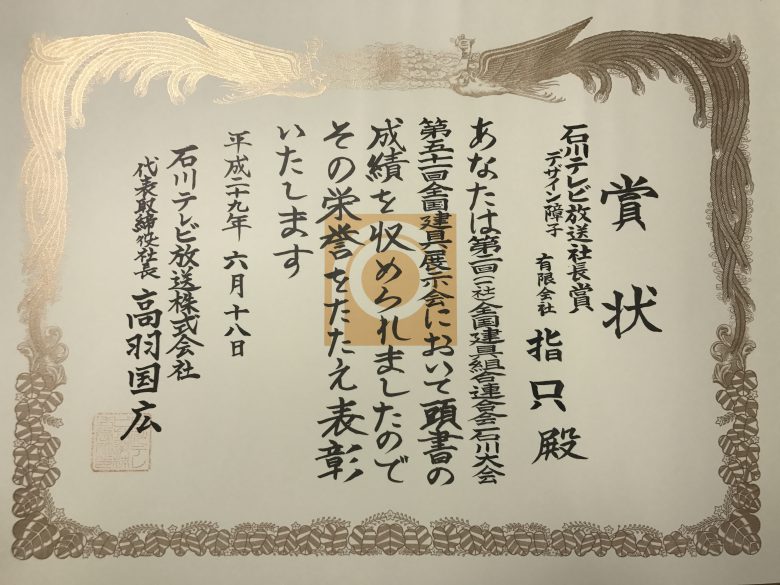 賞状
石川テレビ放送社長賞
デザイン障子
有限会社 指只殿
あなたは第一回(一社)全国建具組合連合会石川大会
第五十一回全国建具展示会において頭書の
成績を収められましたので
その栄誉をたたえ表彰
いたします
平成二十九年 六月十八日
石川テレビ放送株式会社
代表取締役社長 高羽国広